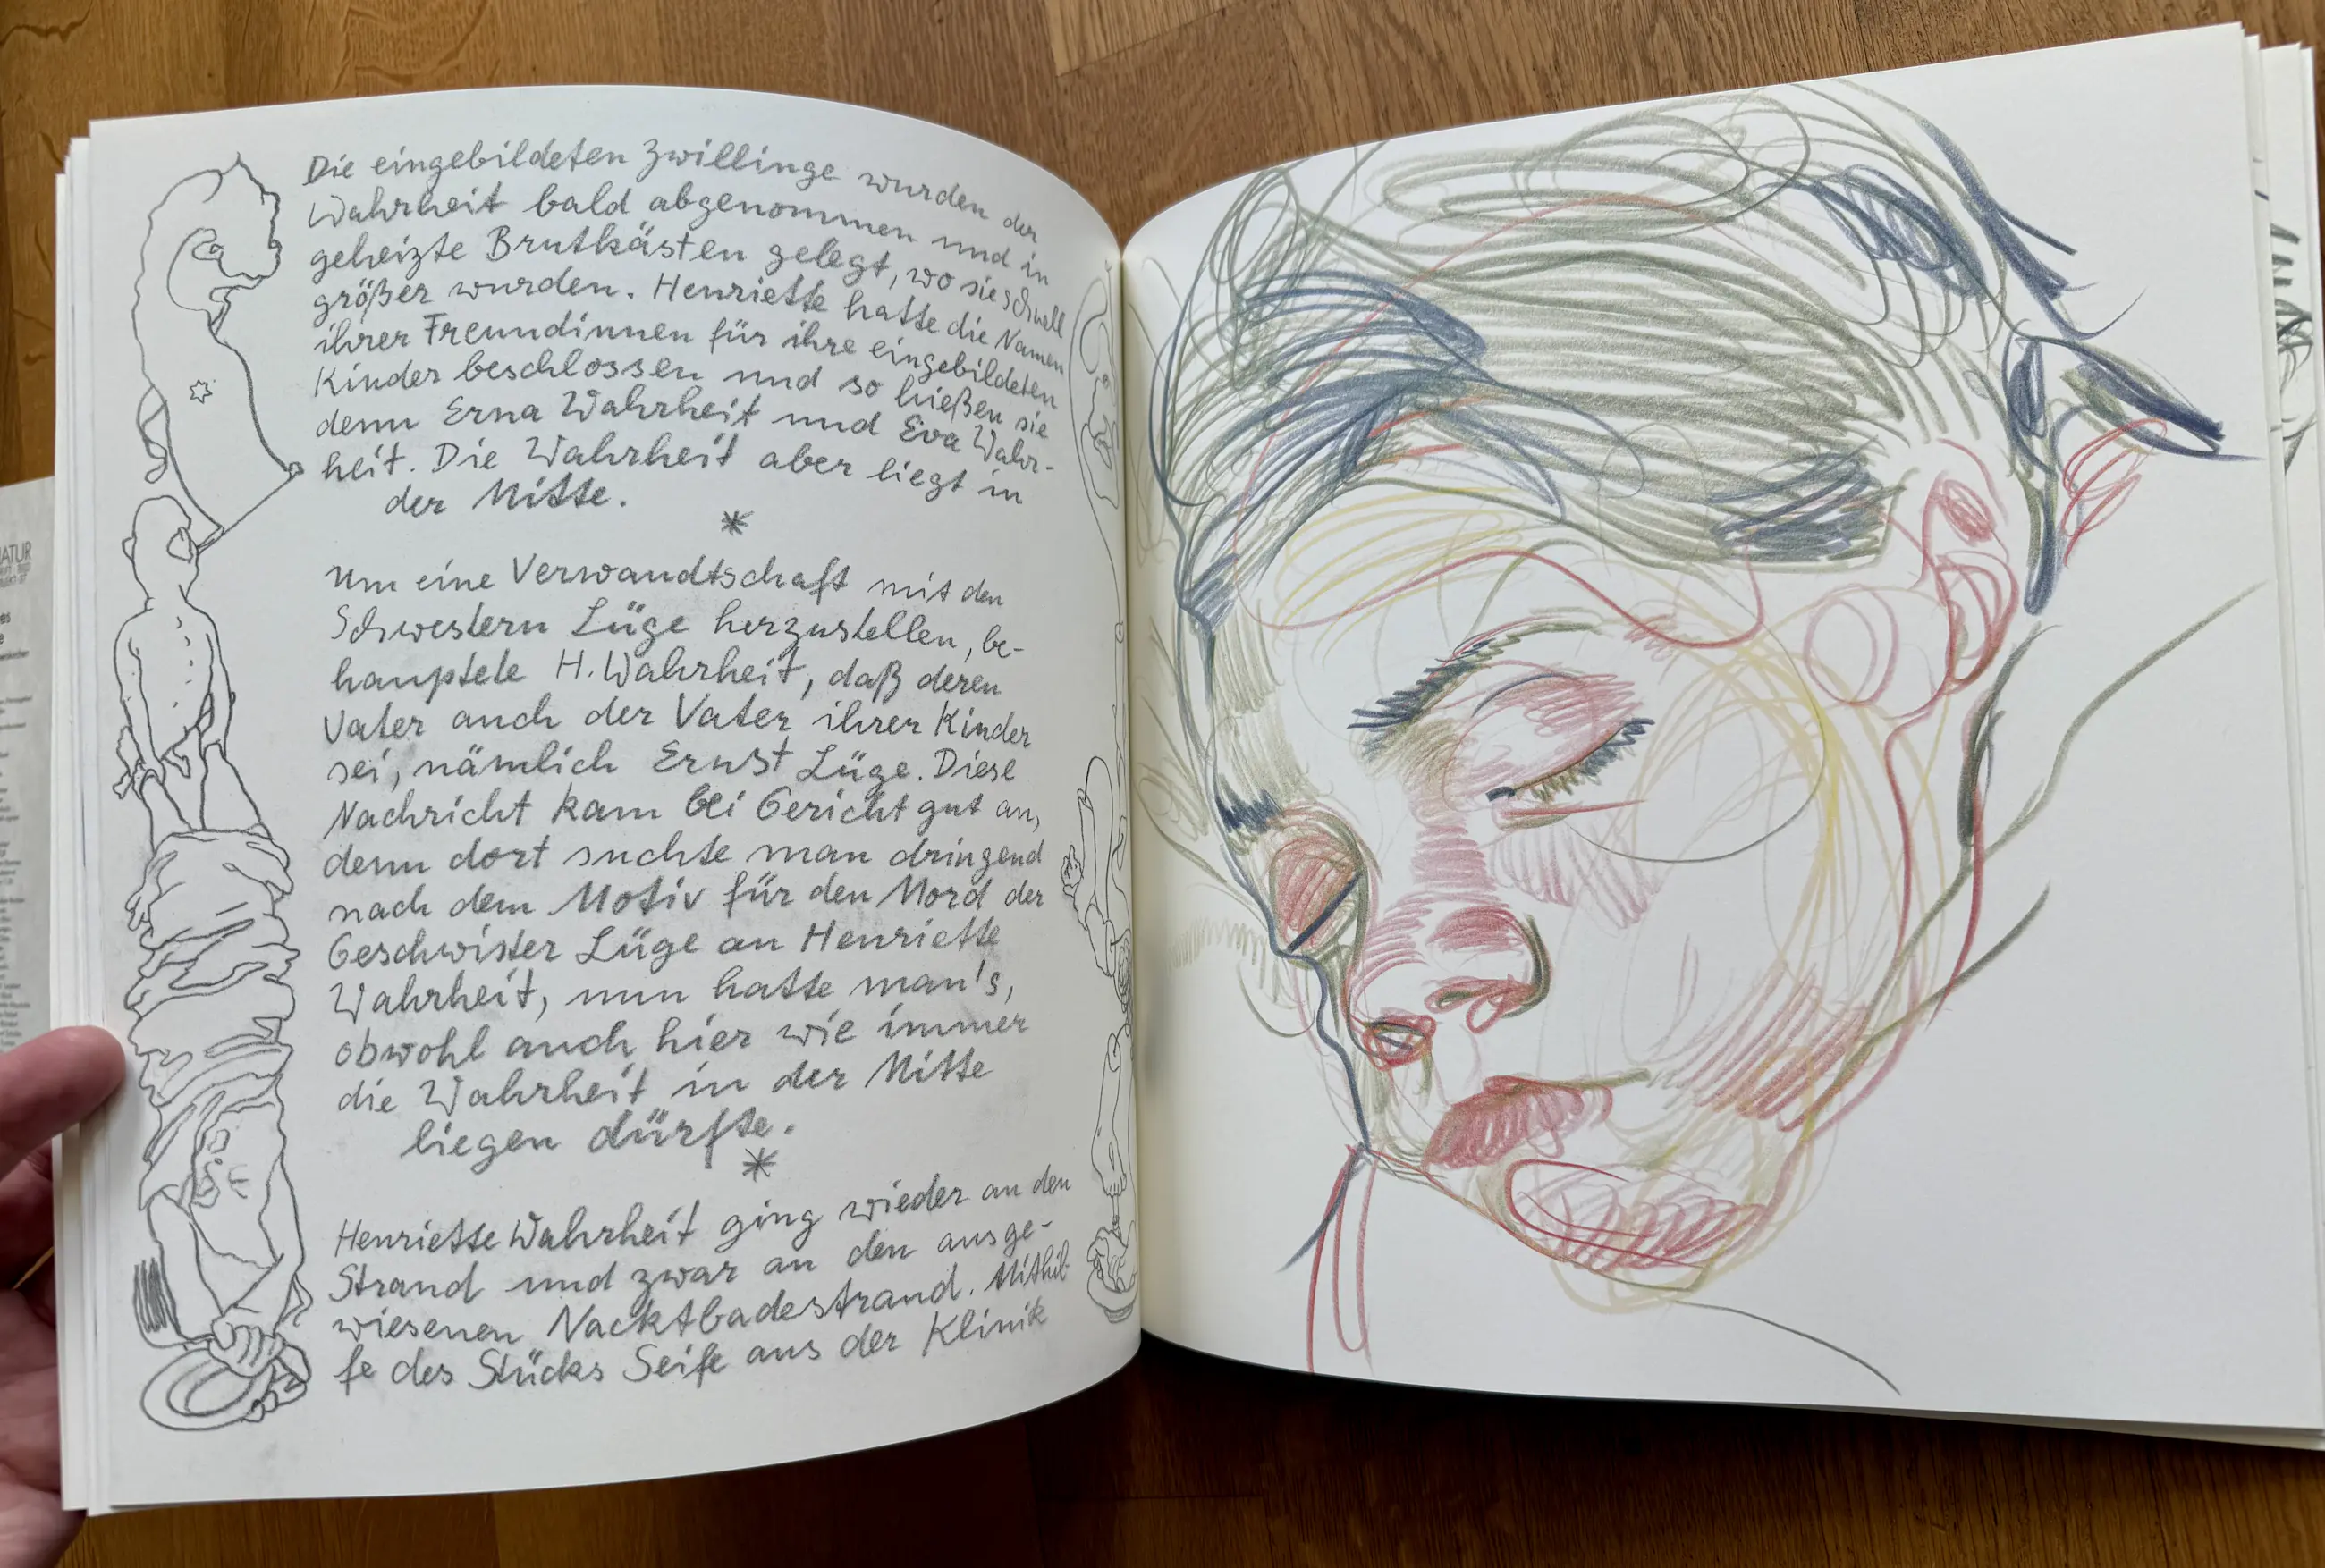 Die eingebildeten Zwillinge wurden der
Wahrheit bald abgenommen und in
geheizte Brutkästen gelegt, wo sie schnell
größer wurden. Henriette hatte die Namen
ihrer Freundinnen für ihre eingebildeten
Kinder beschlossen und so hießen sie
denn Erna Wahrheit und Eva Wahr-
heit. Die Wahrheit aber liegt in
der Mitte.
*
Um eine Verwandtschaft mit den
Schwestern Lüge herzustellen, be-
hauptete H. Wahrheit, daß deren
Vater auch der Vater ihrer Kinder
sei, nämlich Ernst Lüge. Diese
Nachricht kam bei Gericht gut an,
denn dort suchte man dringend
nach dem Motiv für den Mord der
Geschwister Lüge an Henriette
Wahrheit, nun hatte man's,
obwohl auch hier wie immer
die Wahrheit in der Mitte
liegen dürfte.
*
Henriette Wahrheit ging wieder an den
Strand und zwar an den ausge-
wiesenen Nacktbadestrand. Mithil-
fe des Stücks Seife aus der Klinik